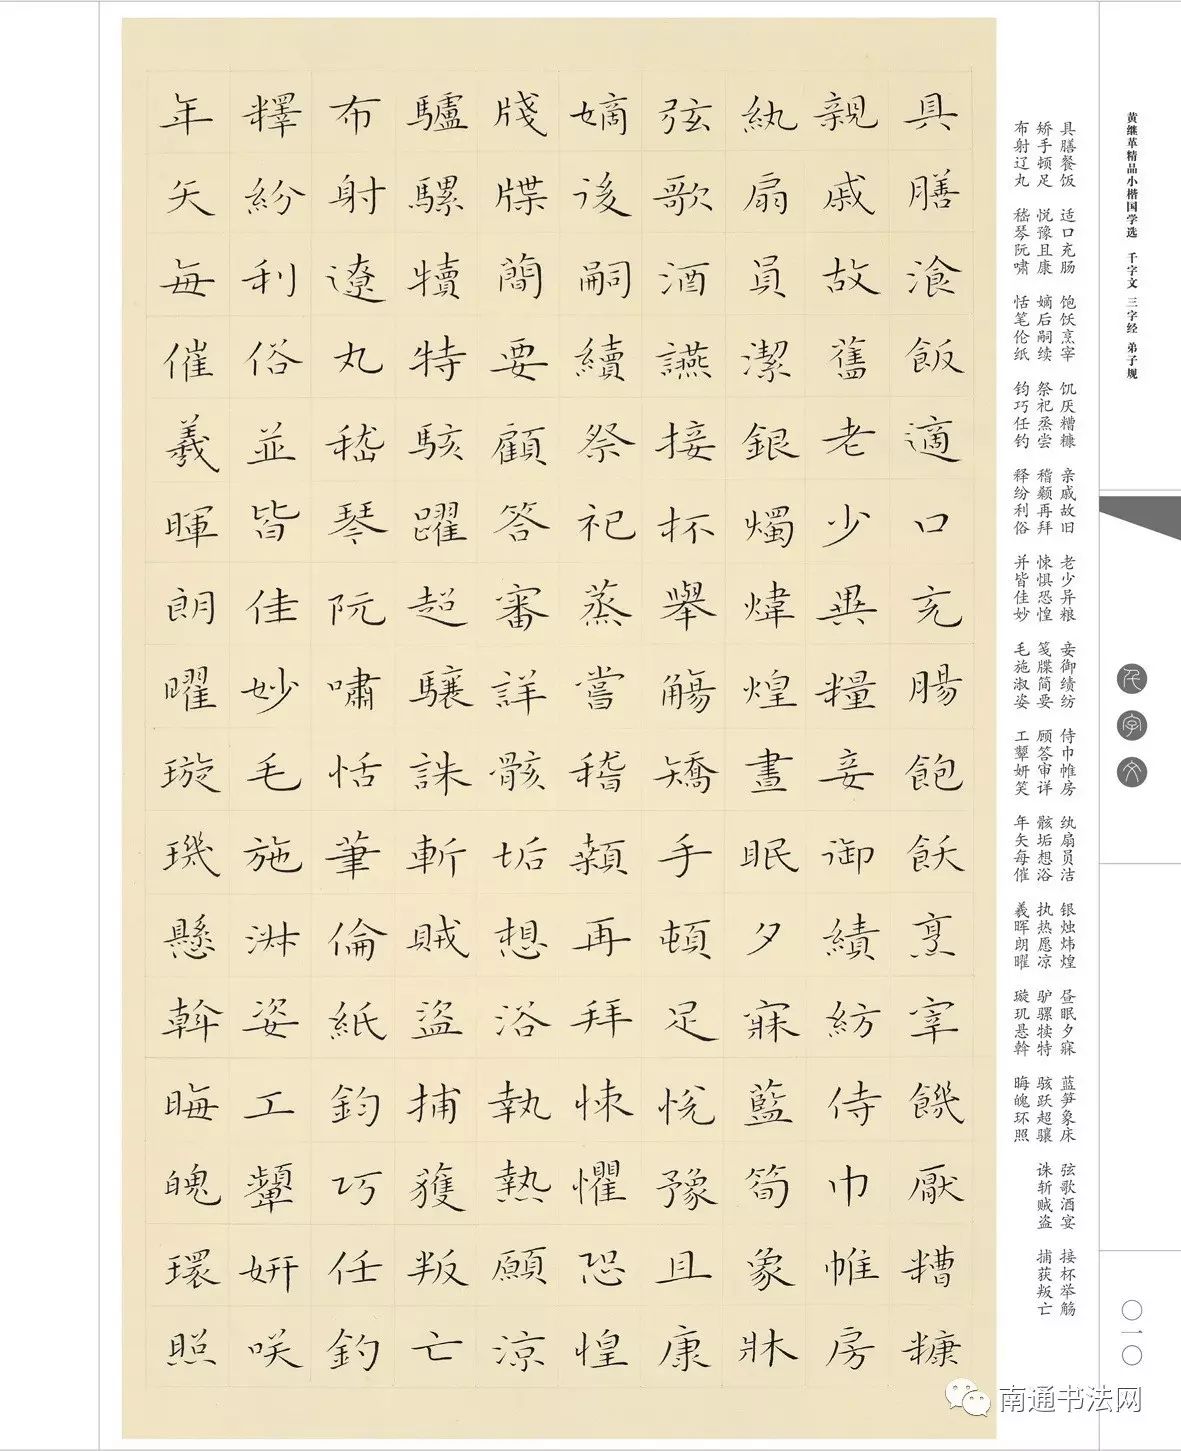 黄继革精品小楷国学选 千字文 三字经 弟子规
千字文
〇一〇
具膳餐饭 适口充肠 饱饫烹宰 饥厌糟糠 亲戚故旧 老少异粮 妾御绩纺 侍巾帷房 纨扇员洁 银烛炜煌 昼眠夕寐 蓝笋象床 弦歌酒宴 接杯举觞
矫手顿足 悦豫且康 嫡后嗣续 祭祀烝尝 稽颡再拜 悚惧恐惶 笺牒简要 顾答审详 骸垢想浴 执热愿凉 驴骡犊特 骇跃超骧 诛斩贼盗 捕获叛亡
布射辽丸 嵇琴阮啸 恬笔伦纸 钧巧任钓 释纷利俗 并皆佳妙 毛施淑姿 工颦妍笑 年矢每催 羲晖朗曜 璇玑悬斡 晦魄环照
具膳湌飯適口充腸飽飫烹宰饑厭糟糠
親戚故舊老少異糧妾御績紡侍巾帷房
紈扇員潔銀燭煒煌晝眠夕寐藍筍象牀
弦歌酒讌接杯舉觴矯手頓足悅豫且康
嫡後嗣續祭祀蒸嘗稽顙再拜悚懼恐惶
牋牒簡要顧答審詳骸垢想浴執熱願涼
驢騾犢特駭躍超驤誅斬賊盜捕獲叛亡
布射遼丸嵇琴阮嘯恬筆倫紙鈞巧任釣
釋紛利俗並皆佳妙毛施淑姿工顰妍咲
年矢每催羲暉朗曜璇璣懸斡晦魄環照
南通书法网